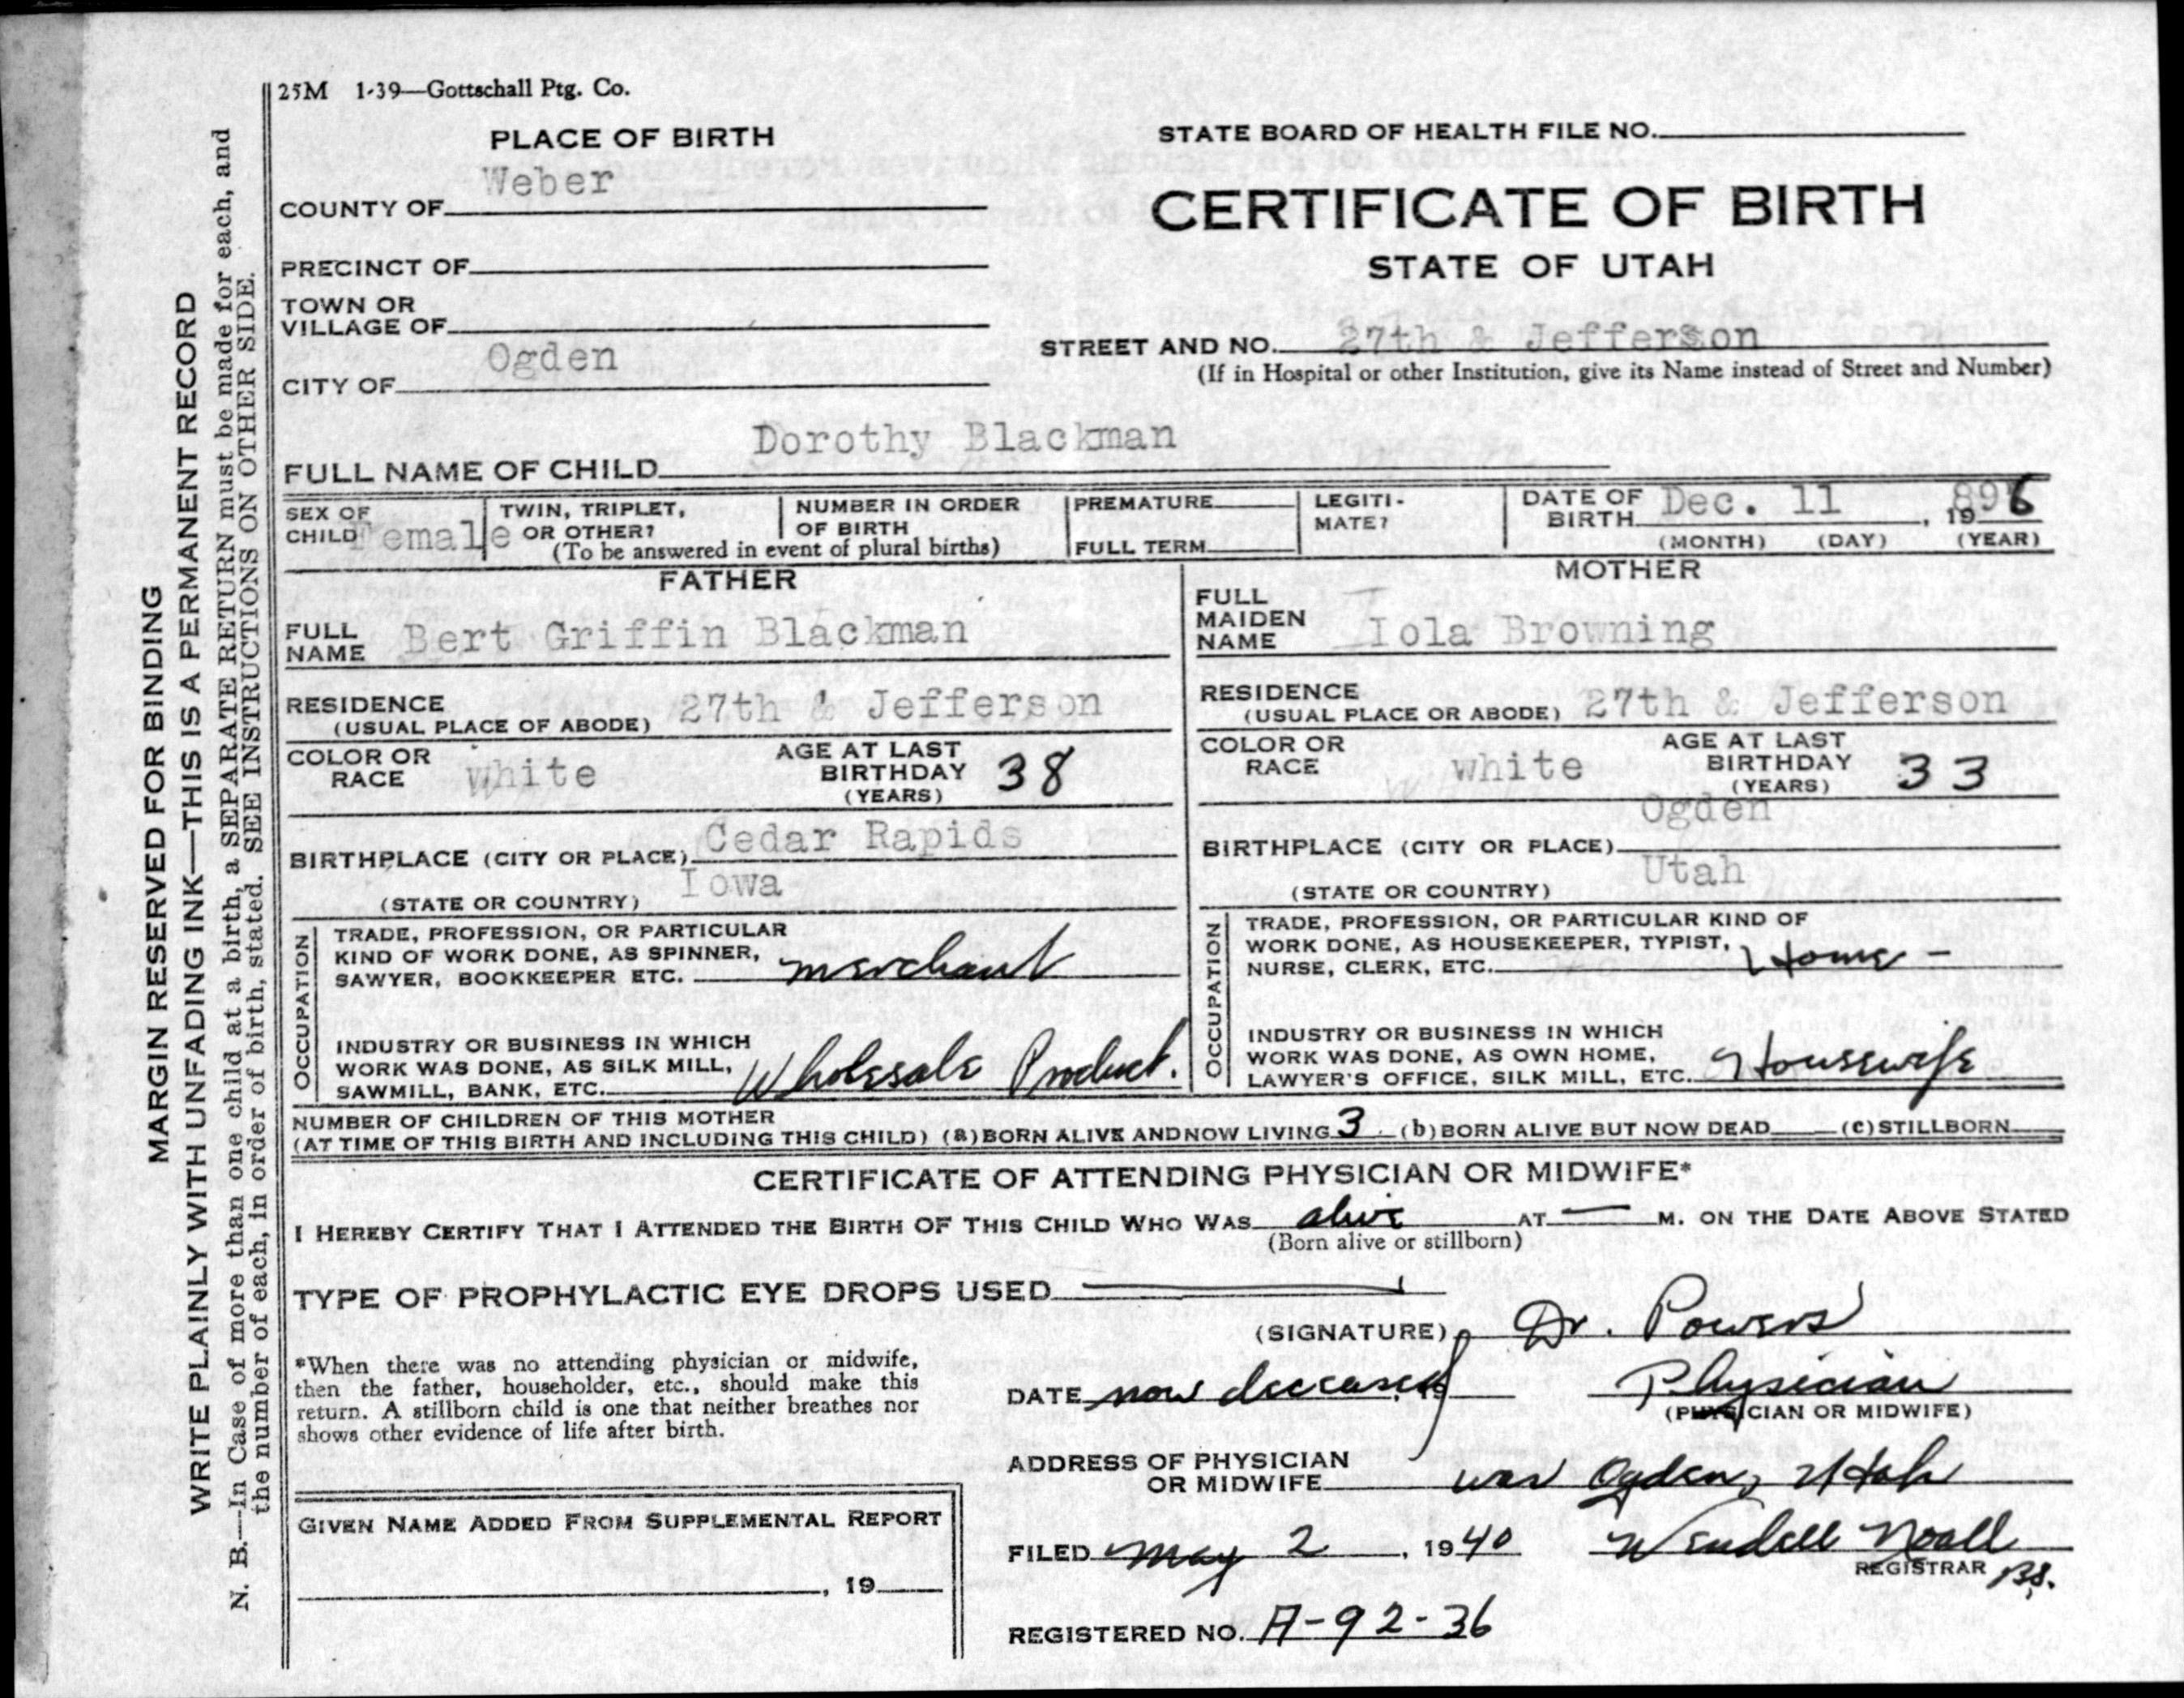 25M 1-39—Gottschall Ptg. Co.
PLACE OF BIRTH
COUNTY OF Weber
PRECINCT OF
TOWN OR
VILLAGE OF
CITY OF Ogden
STATE BOARD OF HEALTH FILE NO.
CERTIFICATE OF BIRTH
STATE OF UTAH
STREET AND NO. 27th & Jefferson
(If in Hospital or other Institution, give its Name instead of Street and Number)
FULL NAME OF CHILD Dorothy Blackman
SEX OF
CHILD Female
TWIN, TRIPLET,
OR OTHER?
NUMBER IN ORDER
OF BIRTH
(To be answered in event of plural births)
PREMATURE
FULL TERM
LEGITI-
MATE?
DATE OF
BIRTH Dec. 11, 1896
(MONTH) (DAY) (YEAR)
FATHER
FULL
NAME Bert Griffin Blackman
RESIDENCE
(USUAL PLACE OF ABODE) 27th & Jefferson
COLOR OR
RACE white
AGE AT LAST
BIRTHDAY 38
(YEARS)
BIRTHPLACE (CITY OR PLACE) Cedar Rapids
(STATE OR COUNTRY) Iowa
OCCUPATION
TRADE, PROFESSION, OR PARTICULAR
KIND OF WORK DONE, AS SPINNER,
SAWYER, BOOKKEEPER ETC. merchant
INDUSTRY OR BUSINESS IN WHICH
WORK WAS DONE, AS SILK MILL,
SAWMILL, BANK, ETC. Wholesale Product.
MOTHER
FULL
MAIDEN
NAME Iola Browning
RESIDENCE
(USUAL PLACE OR ABODE) 27th & Jefferson
COLOR OR
RACE white
AGE AT LAST
BIRTHDAY 33
(YEARS)
BIRTHPLACE (CITY OR PLACE) Ogden
(STATE OR COUNTRY) Utah
OCCUPATION
TRADE, PROFESSION, OR PARTICULAR KIND OF
WORK DONE, AS HOUSEKEEPER, TYPIST,
NURSE, CLERK, ETC. Home -
INDUSTRY OR BUSINESS IN WHICH
WORK WAS DONE, AS OWN HOME,
LAWYER'S OFFICE, SILK MILL, ETC. Housewife
NUMBER OF CHILDREN OF THIS MOTHER
(AT TIME OF THIS BIRTH AND INCLUDING THIS CHILD) (a) BORN ALIVE AND NOW LIVING 3 (b) BORN ALIVE BUT NOW DEAD (c) STILLBORN
CERTIFICATE OF ATTENDING PHYSICIAN OR MIDWIFE*
I HEREBY CERTIFY THAT I ATTENDED THE BIRTH OF THIS CHILD WHO WAS alive AT — M. ON THE DATE ABOVE STATED
(Born alive or stillborn)
TYPE OF PROPHYLACTIC EYE DROPS USED
(SIGNATURE) Dr. Powers
*When there was no attending physician or midwife,
then the father, householder, etc., should make this
return. A stillborn child is one that neither breathes nor
shows other evidence of life after birth.
DATE now deceased, 19
Physician
(PHYSICIAN OR MIDWIFE)
ADDRESS OF PHYSICIAN
OR MIDWIFE was Ogden, Utah
GIVEN NAME ADDED FROM SUPPLEMENTAL REPORT
, 19
FILED May 2, 1940 Wendell Noall
REGISTRAR B.S.
REGISTERED NO. A-92-36
MARGIN RESERVED FOR BINDING
WRITE PLAINLY WITH UNFADING INK—THIS IS A PERMANENT RECORD
N. B.—In Case of more than one child at a birth, a SEPARATE RETURN must be made for each, and
the number of each, in order of birth, stated. SEE INSTRUCTIONS ON OTHER SIDE.